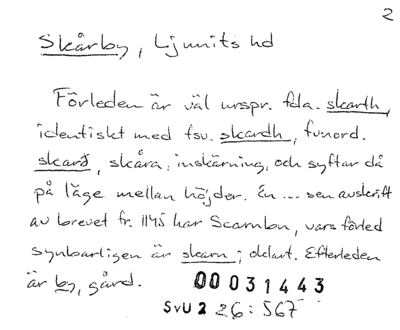 2
Skårby, Ljunits hd
Förleden är väl urspr. fda. skarth,
identiskt med fsv. skardh, fvnord.
skarð, skåra, inskärning, och syftar då
på läge mellan höjder. En ... sen avskrift
av brevet fr. 1145 har Scarnbu, vars förled
synbarligen är skarn; oklart. Efterleden
är by, gård.
00 031443
SvU 2 26:567